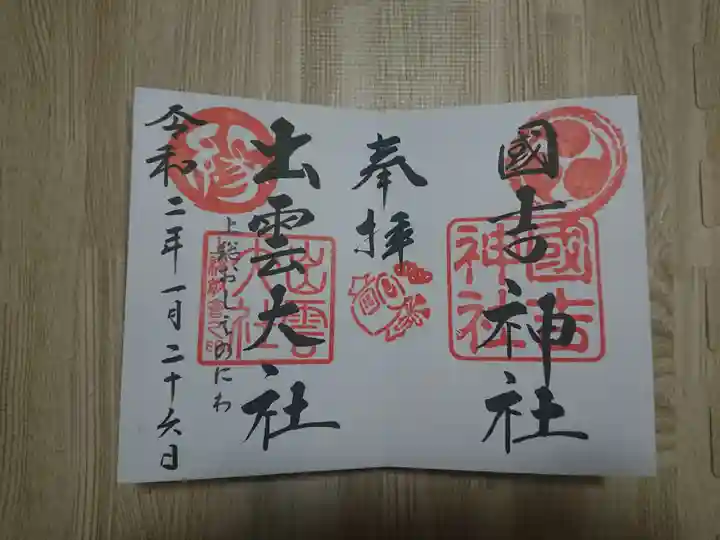 國吉神社
國吉神社
奉拝
出雲大社
出雲大社
上総かしこのにわ
令和二年一月二十六日